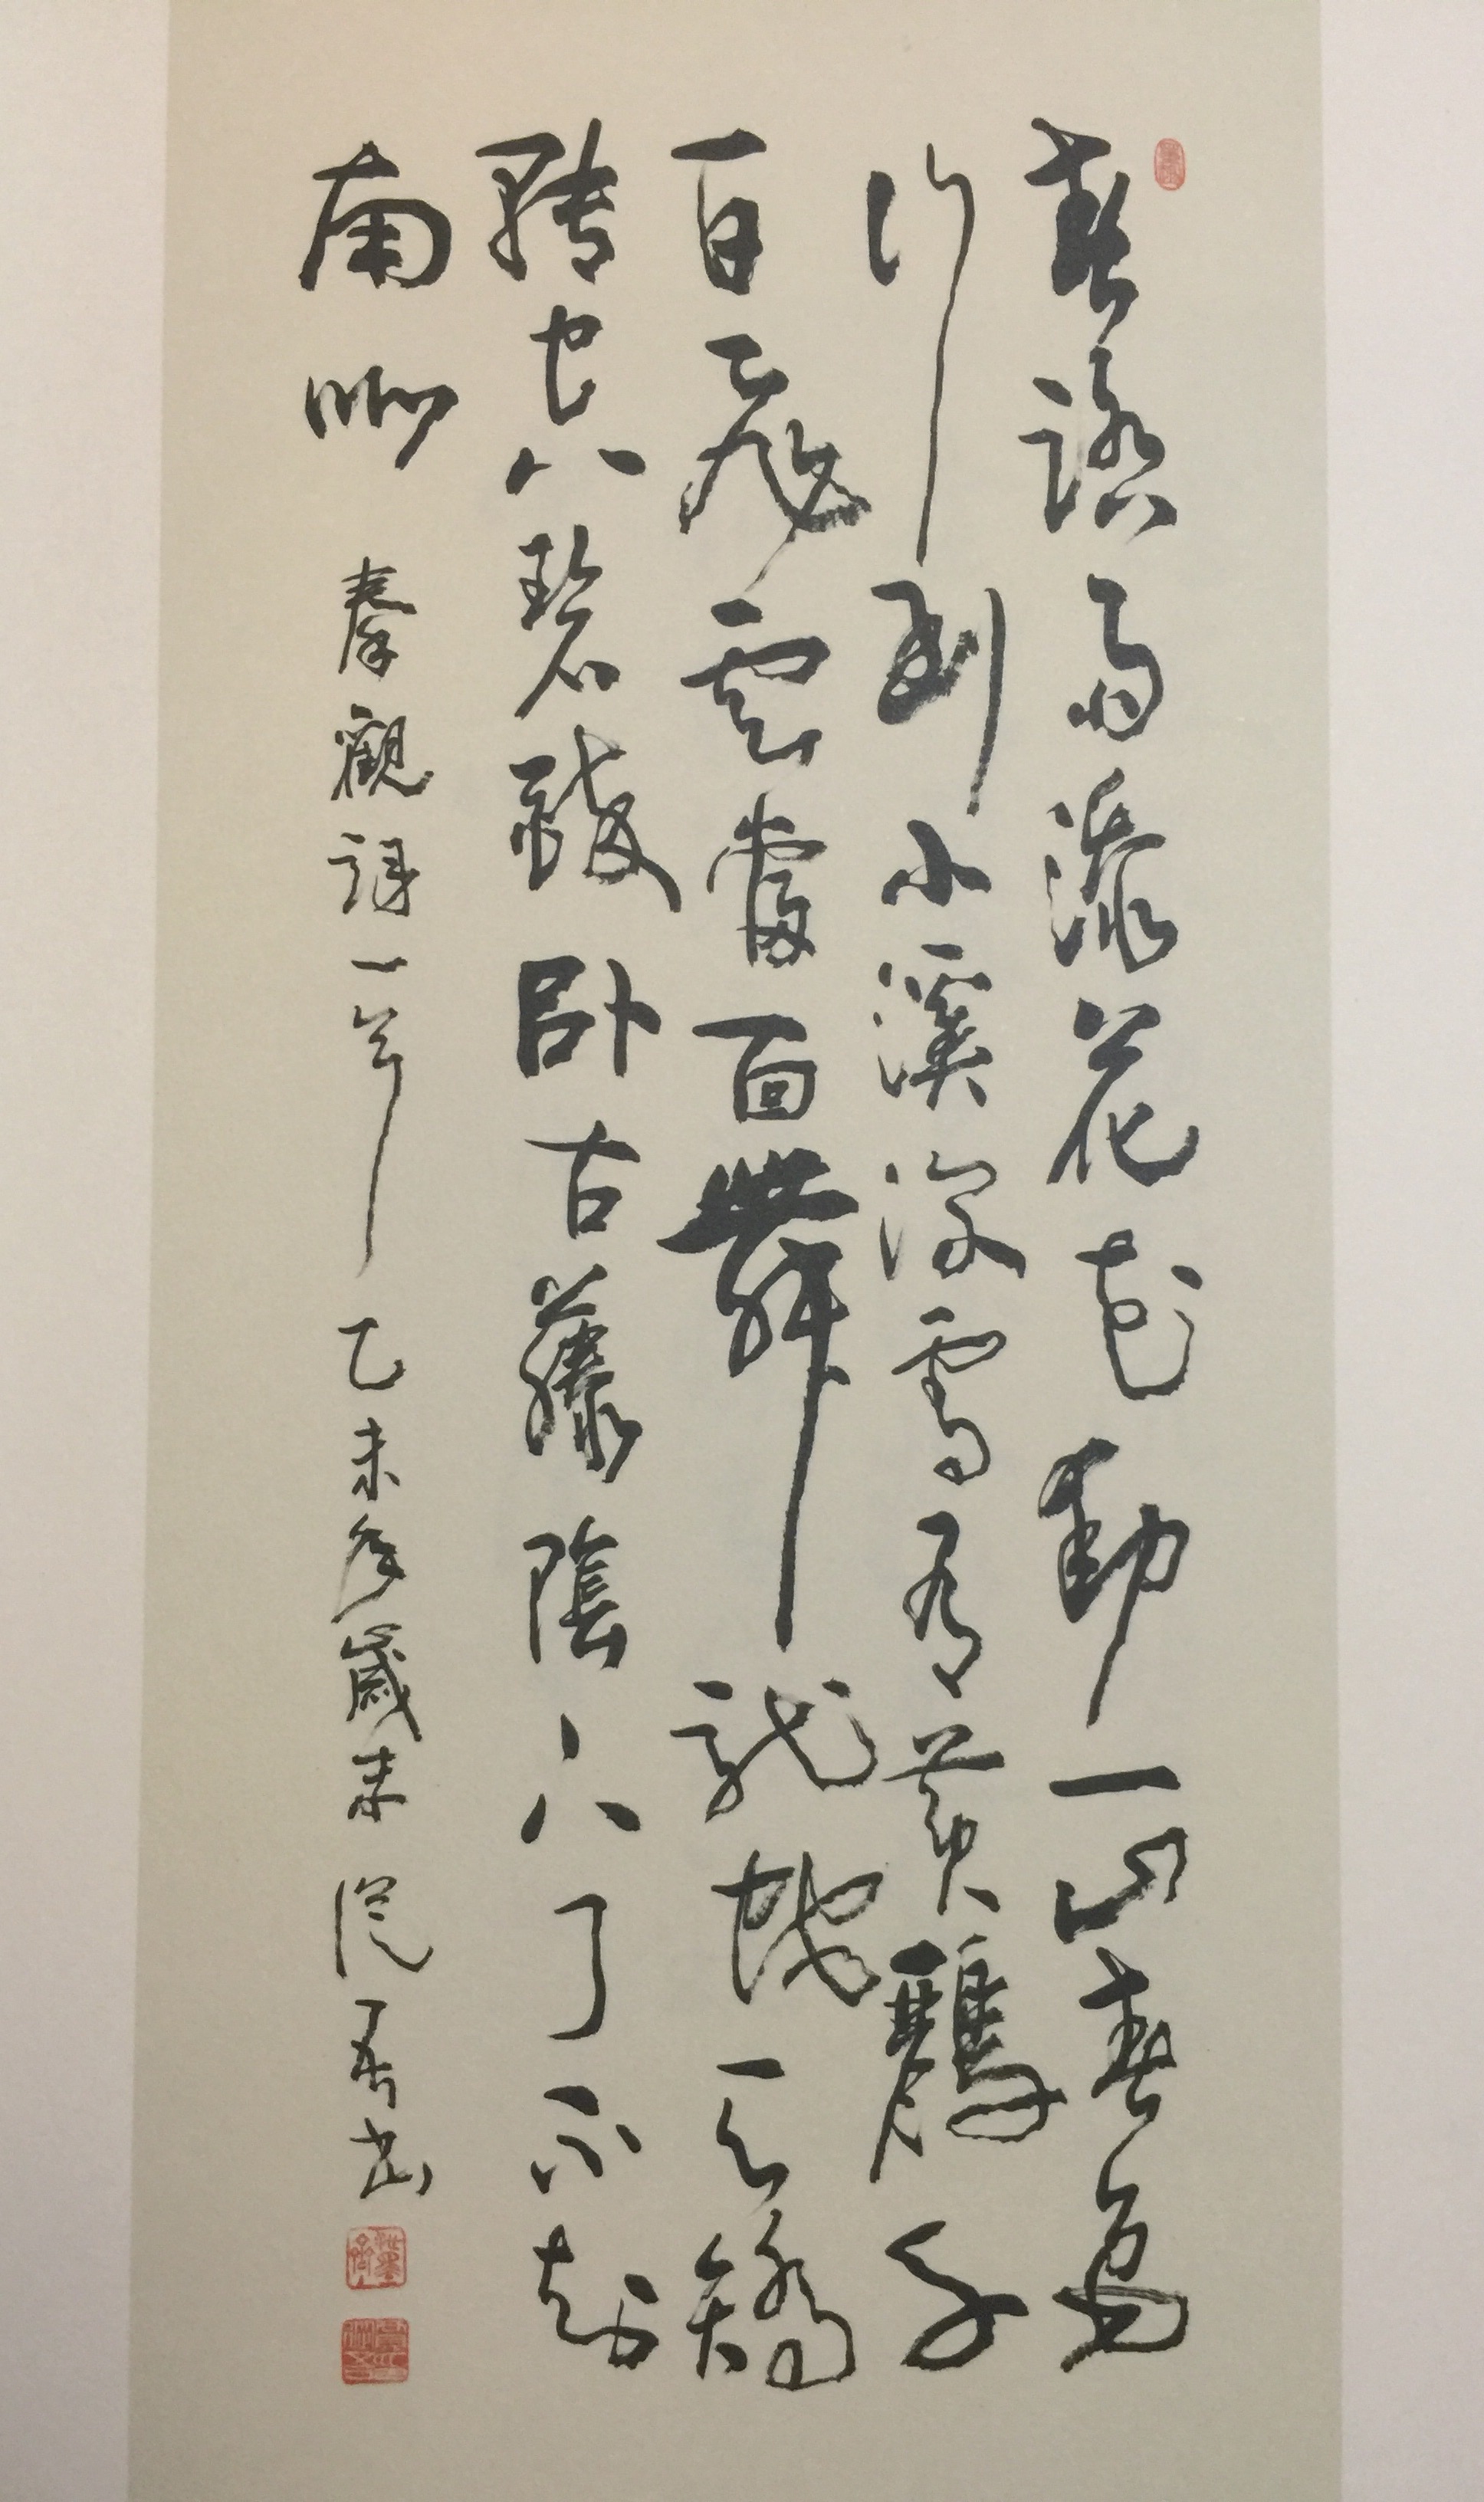 春路雨添花花動一山春色
行到小溪深處有黃鸝千
百飛雲當面舞龍蛇夭矯
轉空碧醉臥古藤陰下了不知
南北
秦觀詞一 乙未年歲末 書